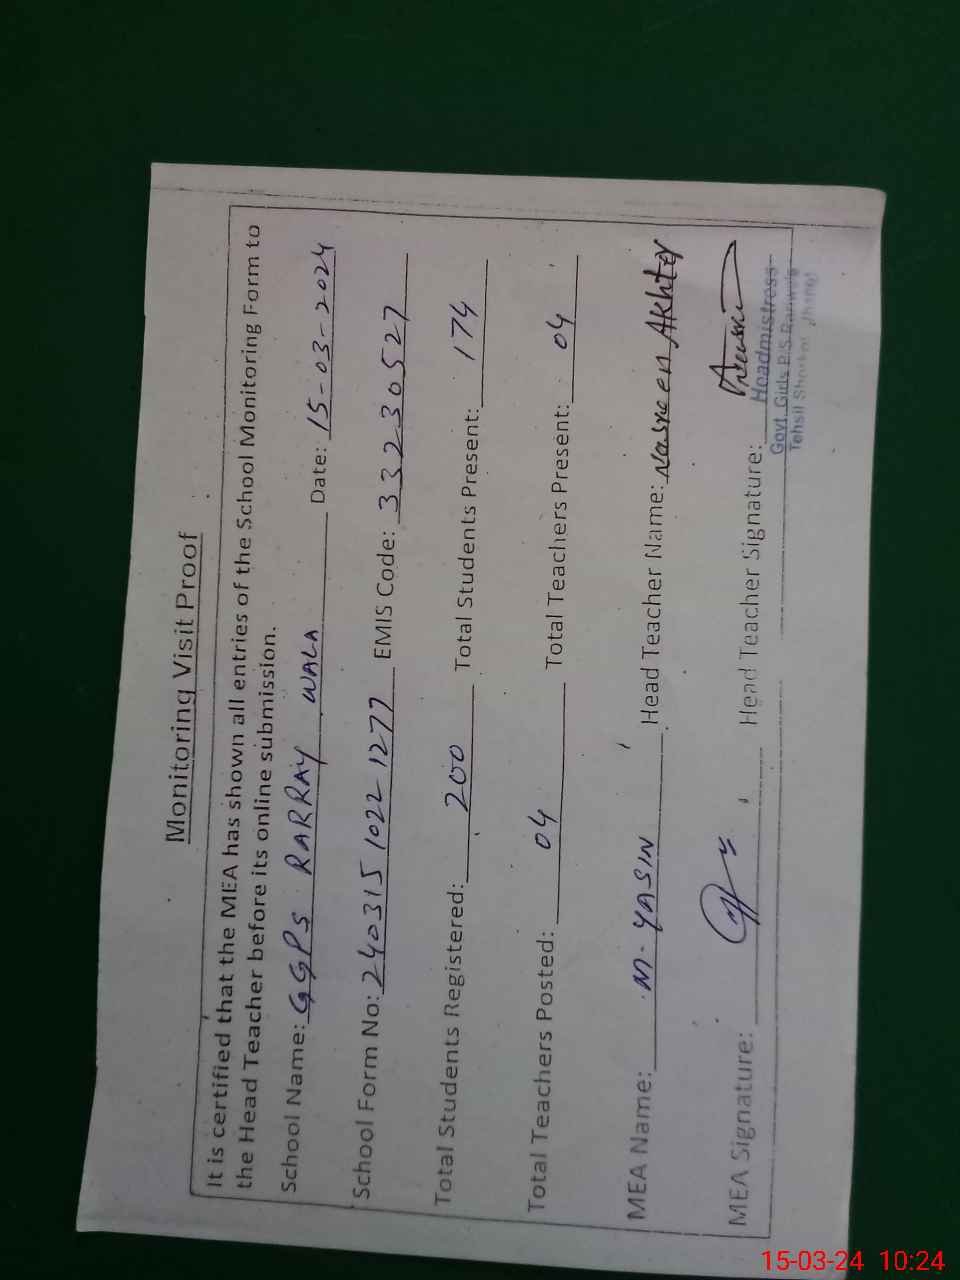 Monitoring Visit Proof
It is certified that the MEA has shown all entries of the School Monitoring Form to
the Head Teacher before its online submission.
School Name: GGPS RARRAY WALA Date: 15-03-2024
School Form No: 240315 1022 1277 EMIS Code: 33230527
Total Students Registered: 200 Total Students Present: 174
Total Teachers Posted: 04 Total Teachers Present: 04
MEA Name: M. YASIN Head Teacher Name: Nasreen Akhter
MEA Signature: Head Teacher Signature:
Headmistress
Govt. Girls P.S
Tehsil
15-03-24 10:24